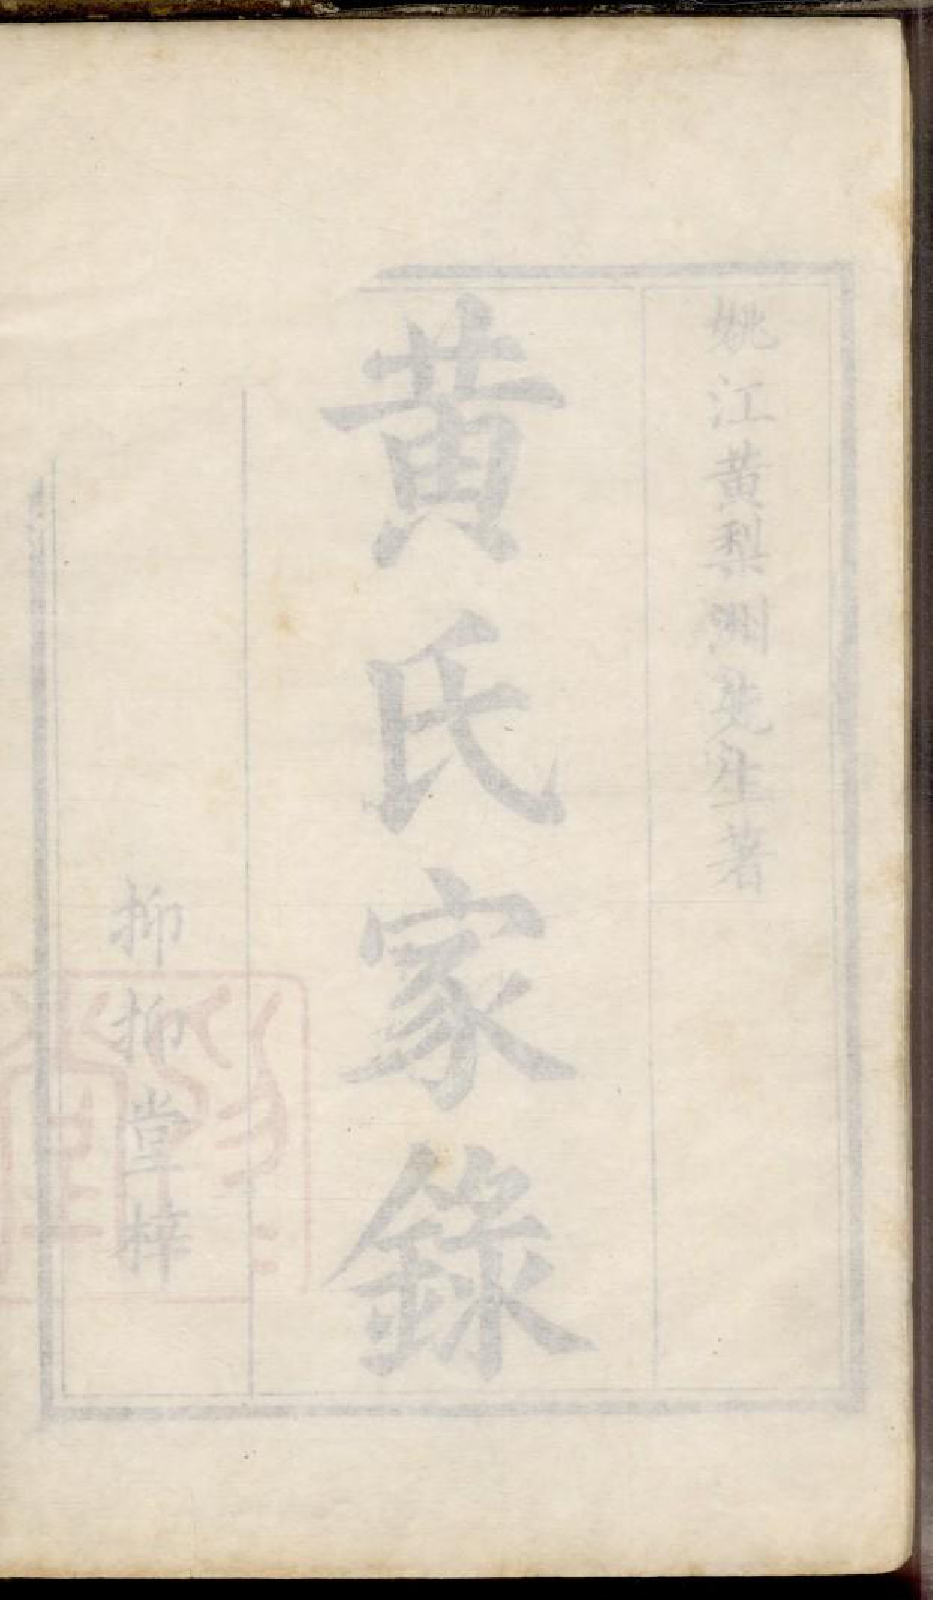 姚江黄梨洲先生著
黄氏家錄
抑抑堂梓